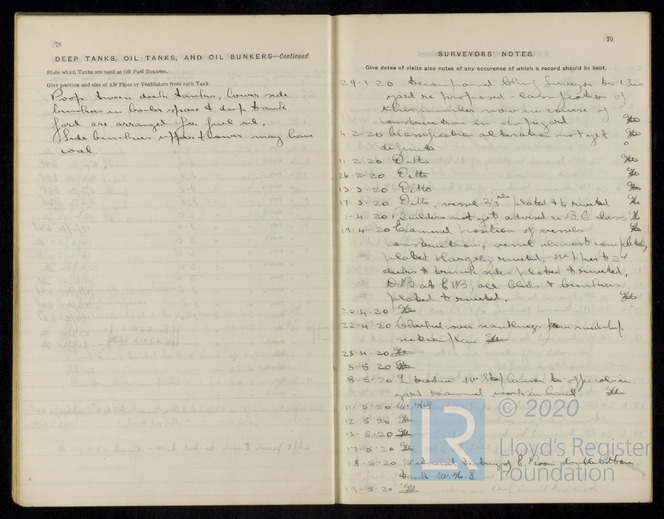 78
DEEP TANKS, OIL TANKS, AND OIL BUNKERS—Continued.
State which Tanks are used as Oil Fuel Bunkers.
Give position and size of Air Pipes or Ventilators from each Tank.
Poop tween deck bunkers, lower side
bunkers in boiler space & deep tank
ford are arranged for fuel oil.
Side bunkers upper & lower may have
coal.
79
SURVEYORS' NOTES.
Give dates of visits also notes of any occurence of which a record should be kept.
29-1-20 Accompanied Chief Surveyor to
yard re proposed classification of
this number now in course of
construction in the yard
4-2-20 Classification alteration not yet
definite
11-2-20 Ditto
26-2-20 Ditto
13-3-20 Ditto
17-3-20 Ditto, vessel 2/3rds plated & ½ riveted
1-4-20 Builders not yet advised re B.C. class
19-4-20 Examined position of vessels
construction, vessel almost completely
plated & largely riveted, upper & 2nd
decks & plated & riveted,
all &
plated & riveted.
20-4-20
22-4-20 Checked over scantlings from midship
section plan
28-4-20
5-5-20
8-5-20 to
yard examined work in hand
11-5-20
12-5-20
13-5-20
17-5-20
18-5-20 Witnessed testing of E Room double bottom
tank
19-5-20
LR
© 2020
Lloyd's Register
Foundation